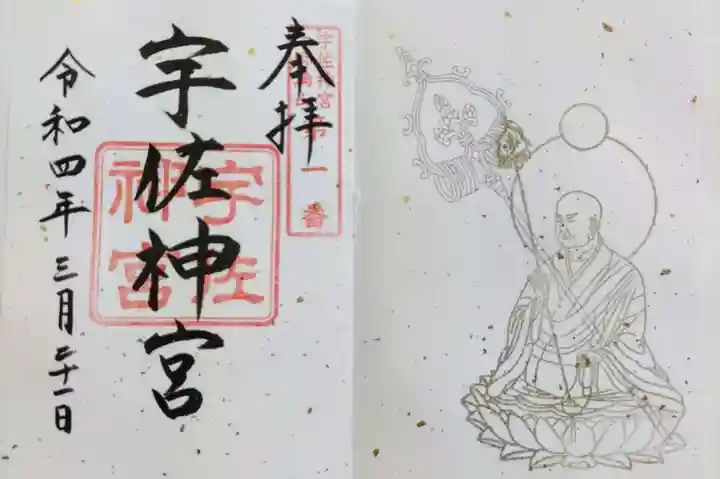 奉拝
第一番
宇佐神宮
宇佐
神宮
令和四年三月二十一日